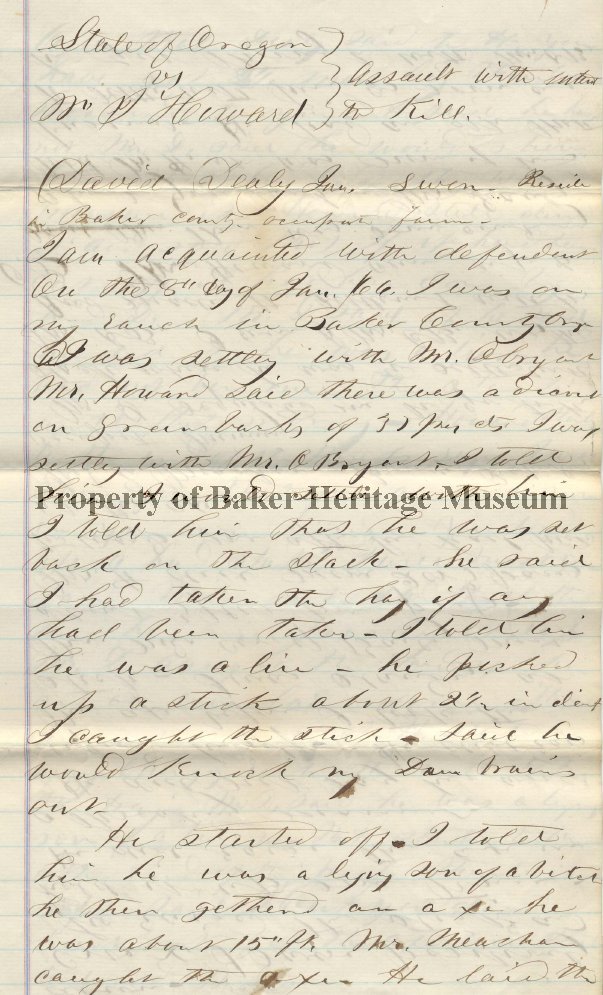 State of Oregon
vs
Wm P Howard
Assault with intent
to Kill.
David Dealy Jan. swon - Reside
in Baker county occupation farm -
I am acquainted with defendent
On the 8th day of Jan. /66. I was on
my ranch in Baker County Orn
I was settlig with Mr. Obryant
Mr. Howard said there was a discount
on Greenbacks of 37 pr cts I was
settlig with Mr. OBryant. I told
him I would settle with him
Property of Baker Heritage Museum
I told him that he was set
back on the stack - he said
I had taken the hay if any
had been taken - I told him
he was a lier - he picked
up a stick about 2½ in diamt
I caught the stick - said he
would Knock my Dam brains
out -
He started off. I told
him he was a lying son of a bitch
he then gethend an axe he
was about 15 ft. Mr. Meacham
caught the axe He laid the